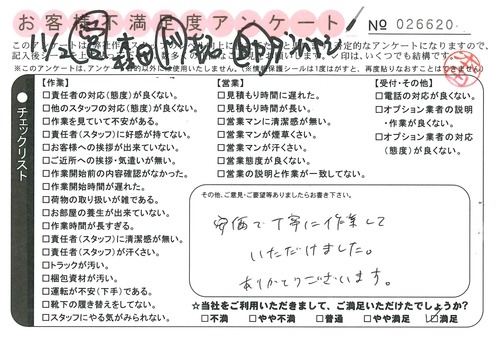 お客様不満足度アンケート
No 026620
【作業】
□責任者の対応(態度)が良くない。
□他のスタッフの対応(態度)が良くない。
□作業を見ていて不安がある。
□責任者(スタッフ)に好感が持てない。
□お客様への挨拶が出来ていない。
□ご近所への挨拶・気遣いが無い。
□作業開始前の内容確認がなかった。
□作業開始時間が遅れた。
□荷物の取り扱いが雑である。
□お部屋の養生が出来ていない。
□作業時間が長すぎる。
□責任者(スタッフ)に清潔感が無い。
□責任者(スタッフ)が汗くさい。
□トラックが汚い。
□梱包資材が汚い。
□運転が不安(下手)である。
□靴下の履き替えをしてない。
□スタッフにやる気がみられない。
【営業】
□見積もり時間に遅れた。
□見積もり時間が長い。
□営業マンに清潔感が無い。
□営業マンが煙草くさい。
□営業マンが汗くさい。
□営業態度が良くない。
□営業の説明と作業が一致してない。
【受付・その他】
□電話の対応が良くない。
□オプション業者の説明
・作業が良くない。
□オプション業者の対応
(態度)が良くない。
チェックリスト
その他、ご意見・ご要望等ありましたらお書き下さい。
安価で丁寧に作業して
いただけました。
ありがとうございます。
☆当社をご利用いただきまして、ご満足いただけたでしょうか?
□不満 □やや不満 □普通 □やや満足 □満足